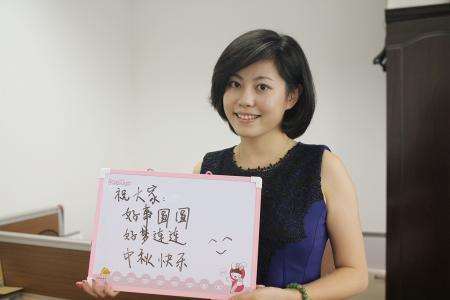 祝大家:
好事圆圆
好梦连连
中秋快乐